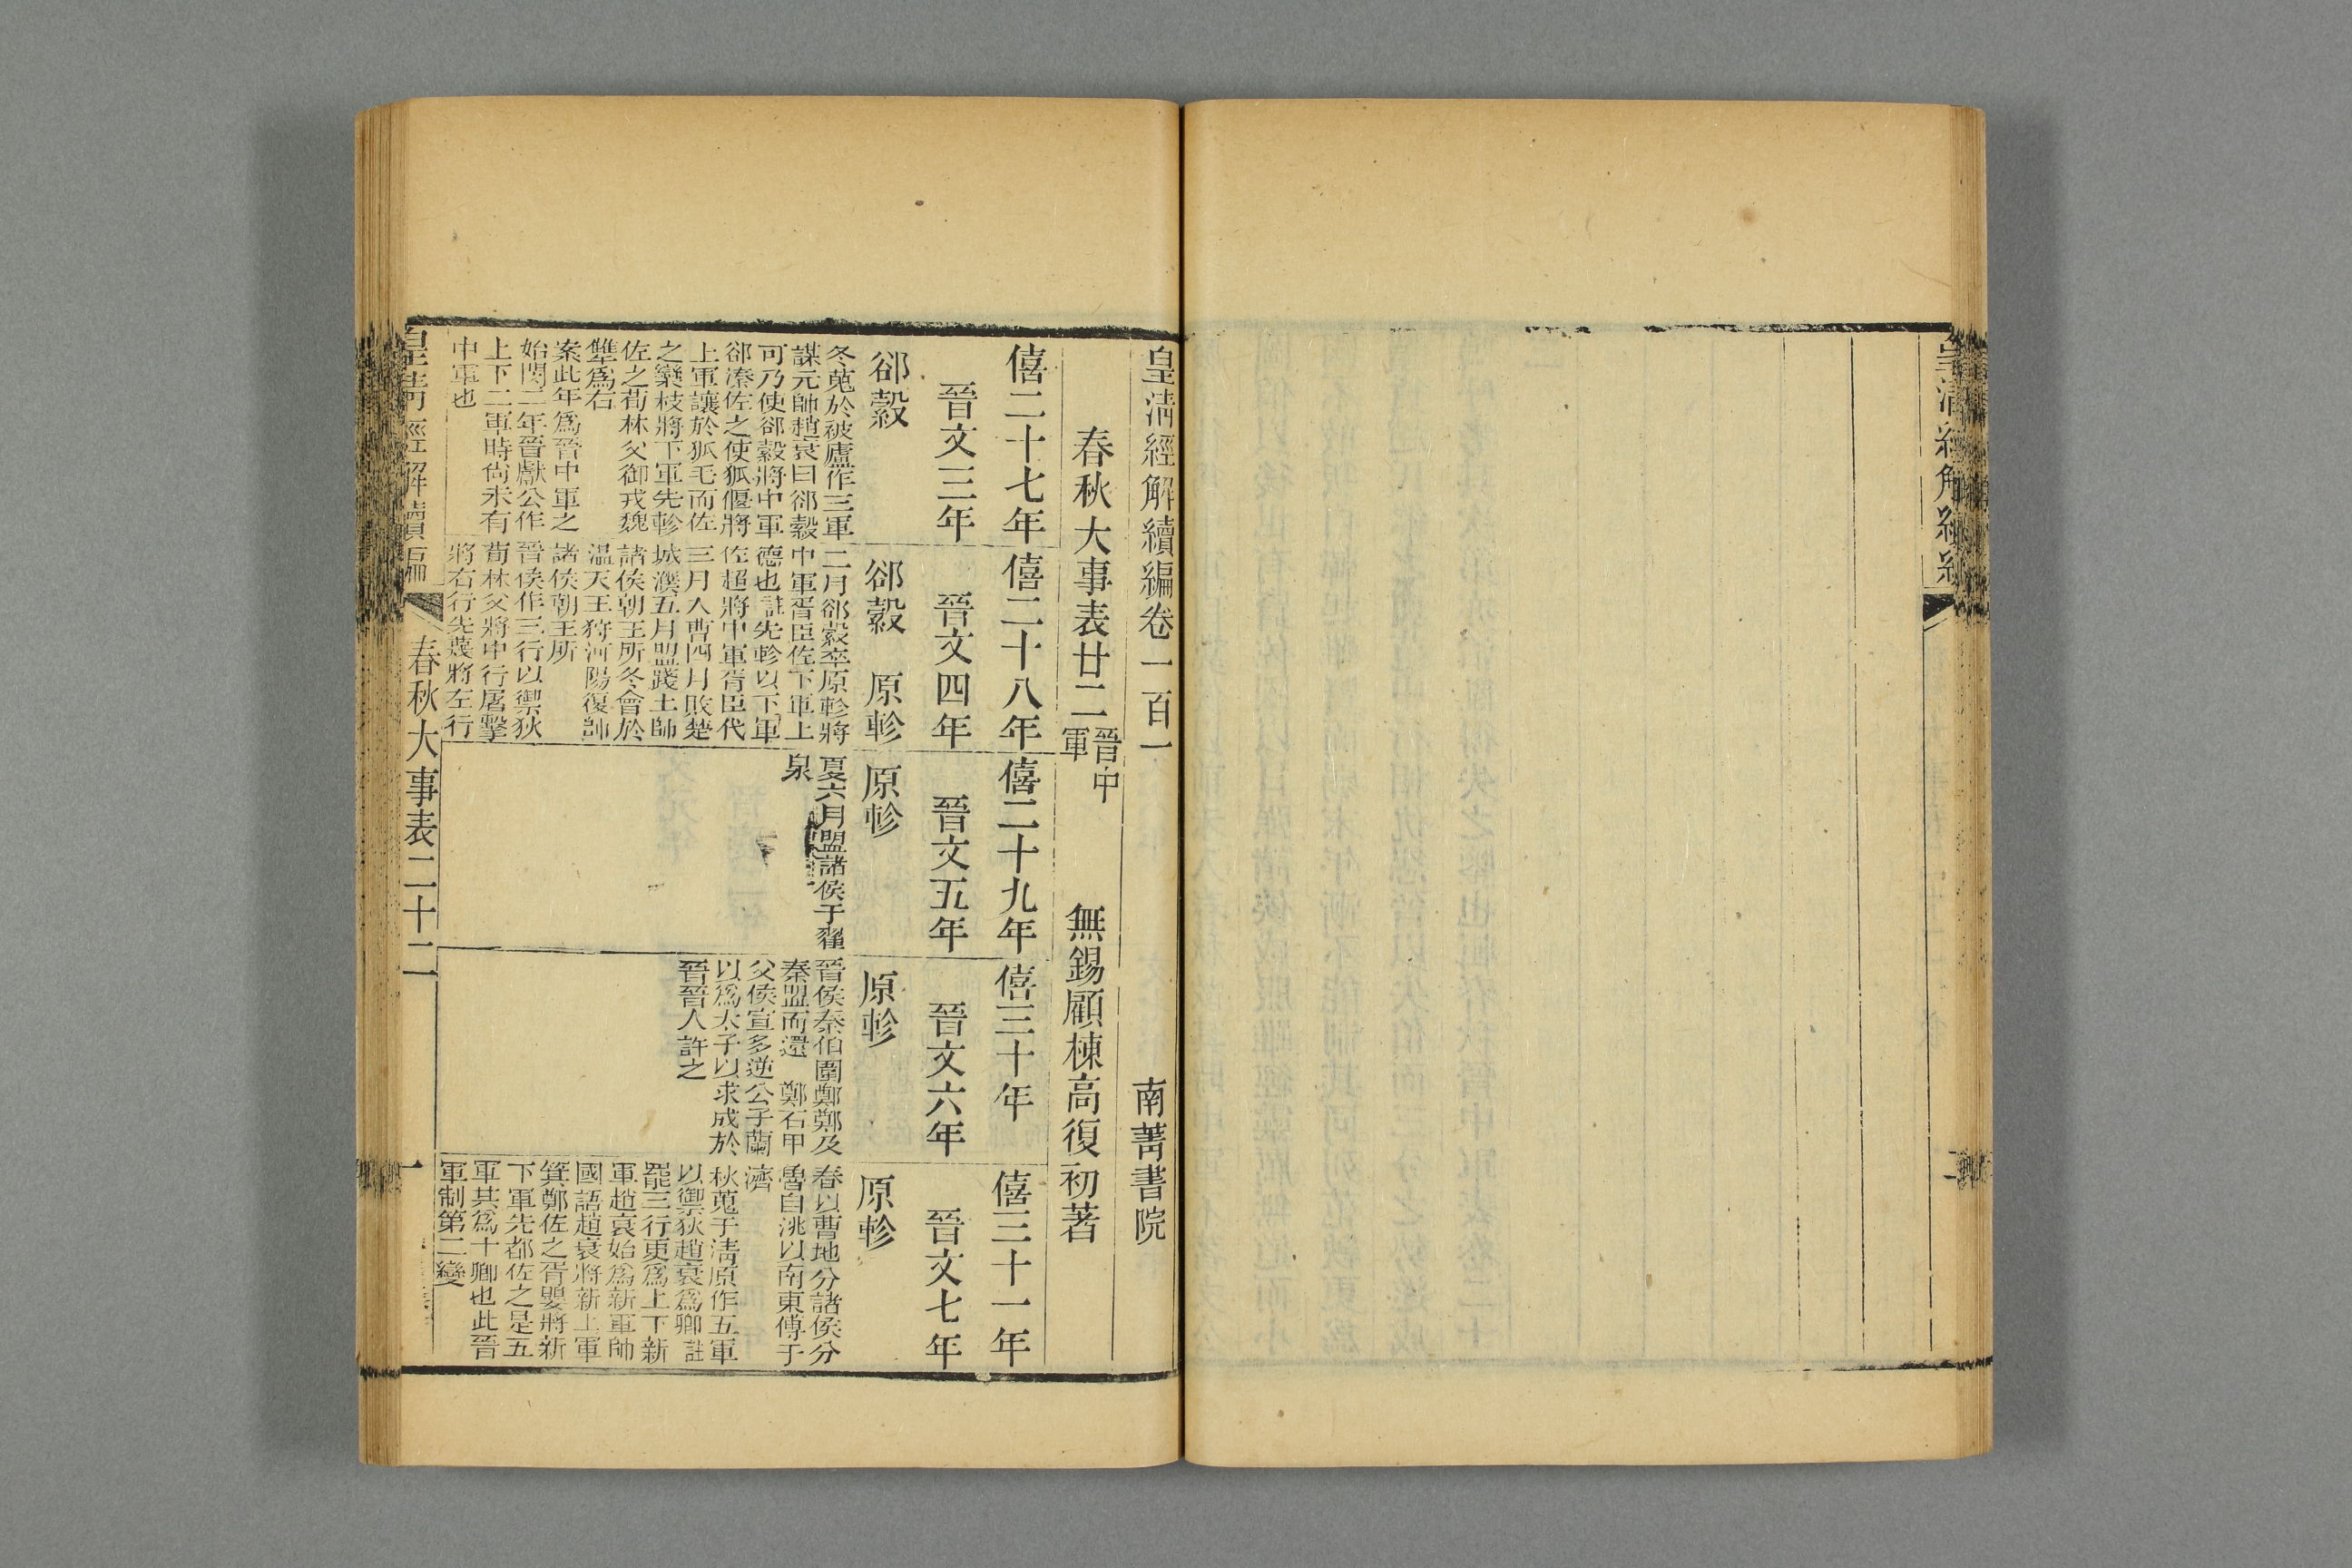 皇清經解續編卷一百一
南菁書院
春秋大事表廿二
晉中
軍
無錫顧棟高復初著
僖二十七年
晉文三年
郤縠
冬蒐於被廬作三軍
謀元帥趙衰曰郤縠
可乃使郤縠將中軍
郤溱佐之使狐偃將
上軍讓於狐毛而佐
之欒枝將下軍先軫
佐之荀林父御戎魏
犨爲右
案此年爲晉中軍之
始閔二年晉獻公作
上下二軍時尙未有
中軍也
僖二十八年
晉文四年
郤縠　原軫
二月郤縠卒原軫將
中軍胥臣佐下軍上
德也註先軫以下軍
佐超將中軍胥臣代
三月入曹四月敗楚
城濮五月盟踐土帥
諸侯朝王所冬會於
温天王狩河陽復帥
諸侯朝王所
晉侯作三行以禦狄
荀林父將中行屠擊
將右行先蔑將左行
僖二十九年
晉文五年
原軫
夏六月盟諸侯于翟
泉
僖三十年
晉文六年
原軫
晉侯秦伯圍鄭鄭及
秦盟而還　鄭石甲
父侯宣多逆公子蘭
以爲太子以求成於
晉晉人許之
僖三十一年
晉文七年
原軫
春以曹地分諸侯分
魯自洮以南東傅于
濟
秋蒐于清原作五軍
以禦狄趙衰爲卿註
罷三行更爲上下新
軍趙衰始爲新軍帥
國語趙衰將新上軍
箕鄭佐之胥嬰將新
下軍先都佐之是五
軍其爲十卿也此晉
軍制第二變
皇清經解續編
春秋大事表二十二
一